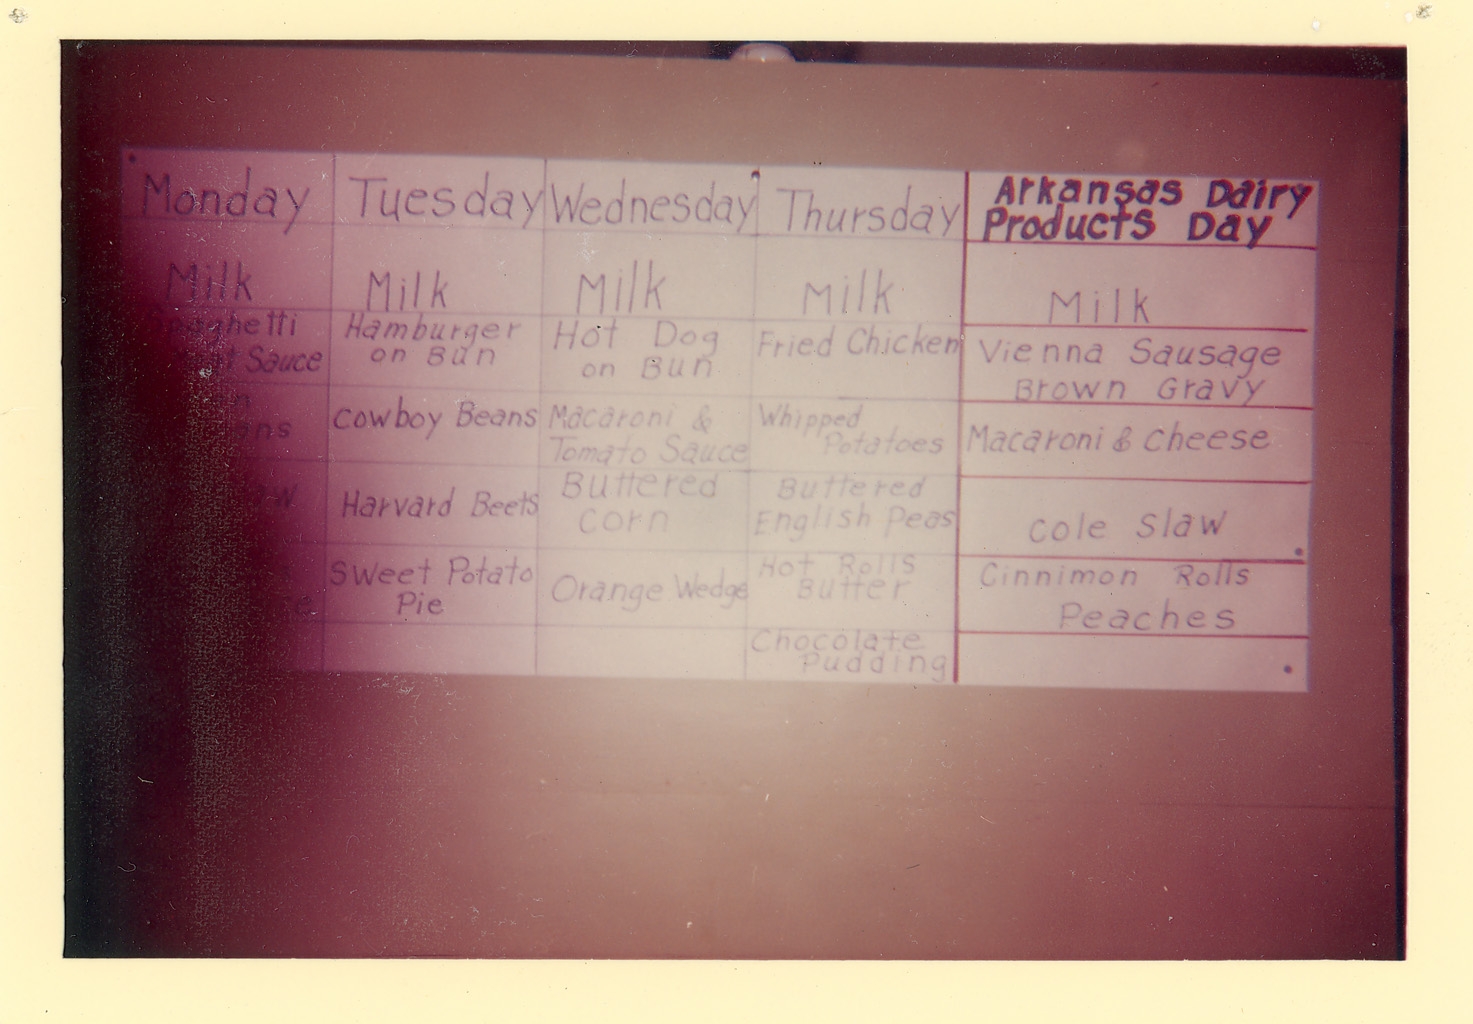 Monday
Milk
Spaghetti
Sauce
Tuesday
Milk
Hamburger
on Bun
Cowboy Beans
Harvard Beets
Sweet Potato
Pie
Wednesday
Milk
Hot Dog
on Bun
Macaroni &
Tomato Sauce
Buttered
Corn
Orange Wedge
Thursday
Milk
Fried Chicken
Whipped
Potatoes
Buttered
English Peas
Hot Rolls
Butter
Chocolate
Pudding
Arkansas Dairy
Products Day
Milk
Vienna Sausage
Brown Gravy
Macaroni & Cheese
Cole Slaw
Cinnimon Rolls
Peaches